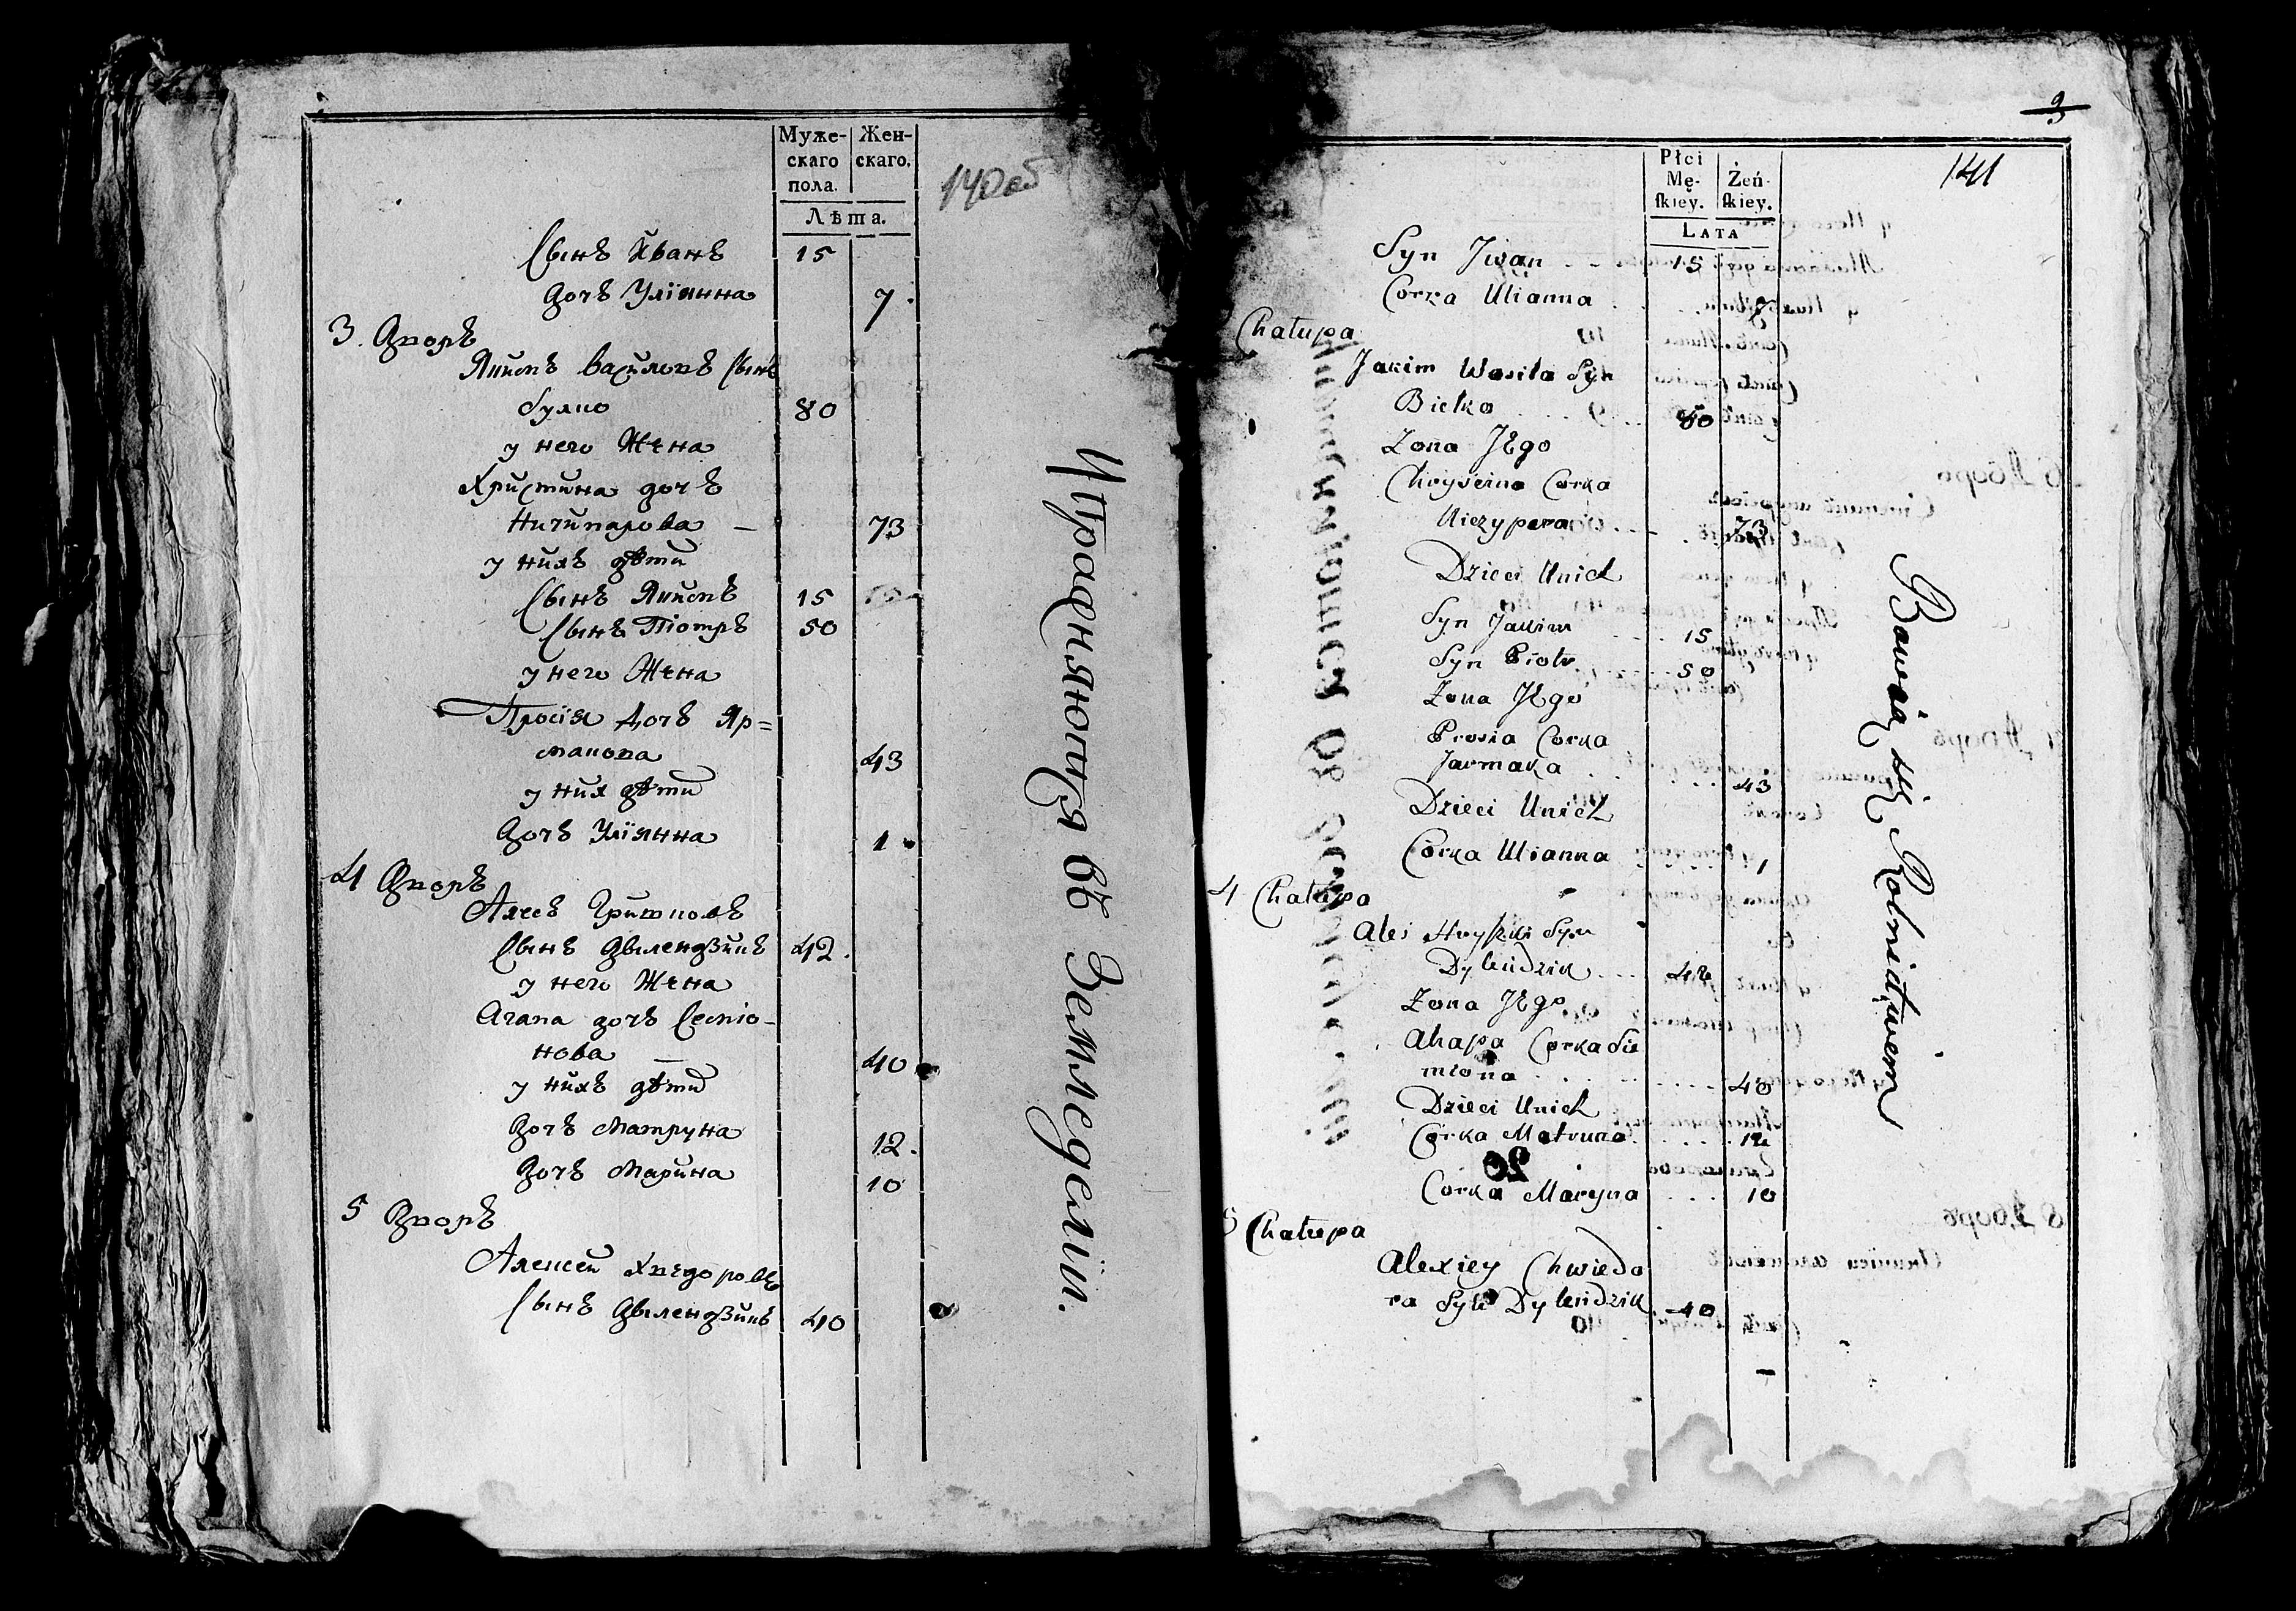 Муже-
скаго
пола.
Жен-
скаго.
Лѣта.
140об
Сынъ Иванъ 15
дочъ Улiянна 7.
3. Дворъ
Якимъ Василевъ Сынъ
80
у него Жена
Христина дочъ
Ничипарова — 73
у нихъ дѣти
Сынъ Якимъ 15
Сынъ Пiотръ 50
у него Жена
Просiя дочъ Яр=
макова 43
у них дѣти
Дочъ Улiянна 1
4 Дворъ
Алесъ Гришковъ
Сынъ Дылендзикъ 42.
у него Жена
Агапа дочъ Семiо-
нова 40
у нихъ дѣти
Дочъ Матруна 12.
Дочъ Марина 10
5 Дворъ
Алексей Хведоровъ
Сынъ Дылендзикъ 40
Упражняются въ Земледелiи.
9
141
Płci
Mę-
ſkiey.
Żeń-
ſkiey.
LATA
Syn Jwan 15
Corka Ulianna 7
Chałupa
Jakim Wasila Syn
Bielko 80
Żona JEgo
Chryscina Corka
Niczypara 73
Dzieci Unich
Syn Jakim 15
Syn Piotr 50
Żona JEgo
Prosia Corka
Jarmaka 43
Dzieci Unich
Corka Ulianna 1
4 Chałupa
Ales Hryszki Syn
Dylendzik 42
Żona JEgo
Ahapa Corka Sie
miona 40
Dzieci Unich
Corka Matruna 12
Corka Maryna 10
5 Chałupa
Alexiey Chwiedo
ra Syn Dylendzik 40
Bawią się Rolnictwem